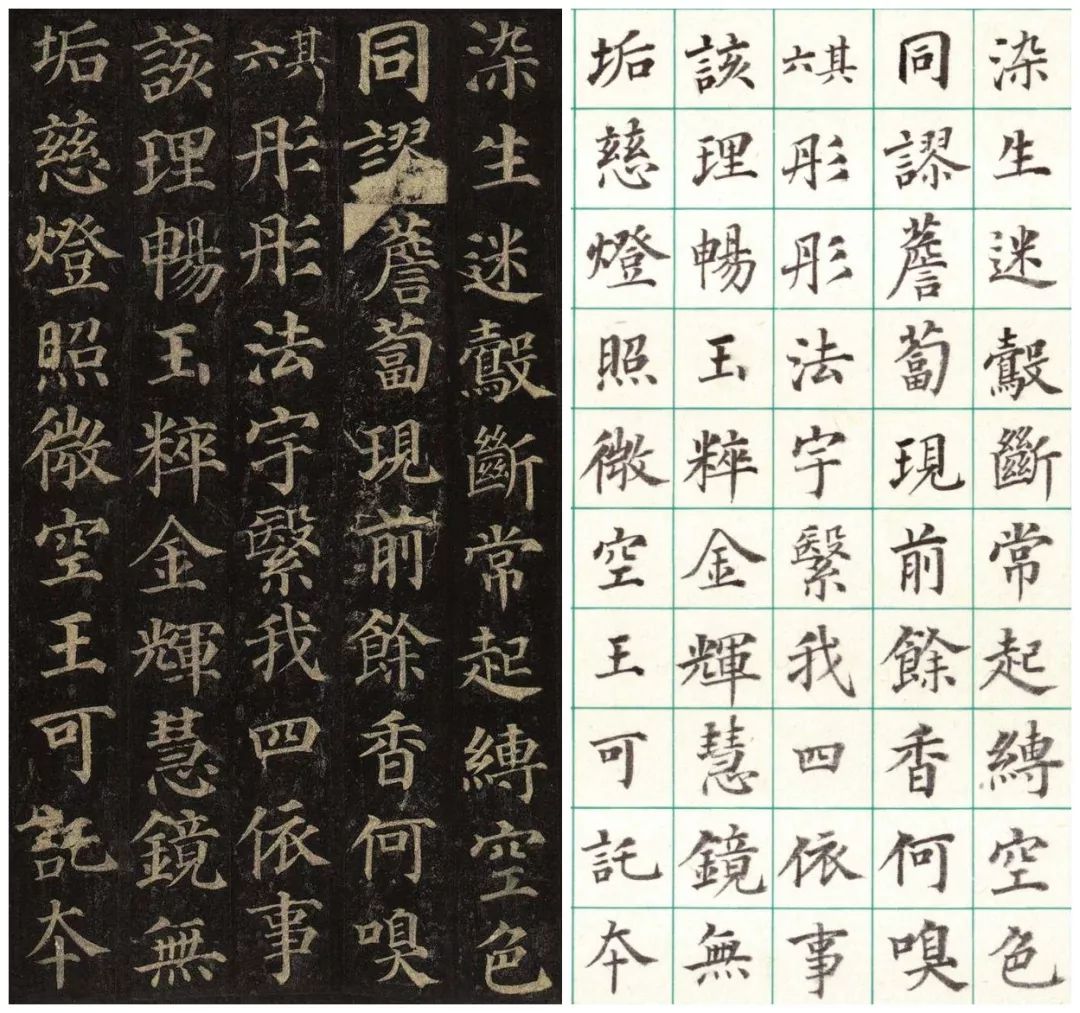 染生迷鷇斷常起縛空色
同謬薝蔔現前餘香何嗅
其六彤彤法宇繄我四依事
該理暢玉粹金輝慧鏡無
垢慈燈照微空王可託夲
染生迷鷇斷常起縛空色
同謬薝蔔現前餘香何嗅
其六彤彤法宇繄我四依事
該理暢玉粹金輝慧鏡無
垢慈燈照微空王可託夲